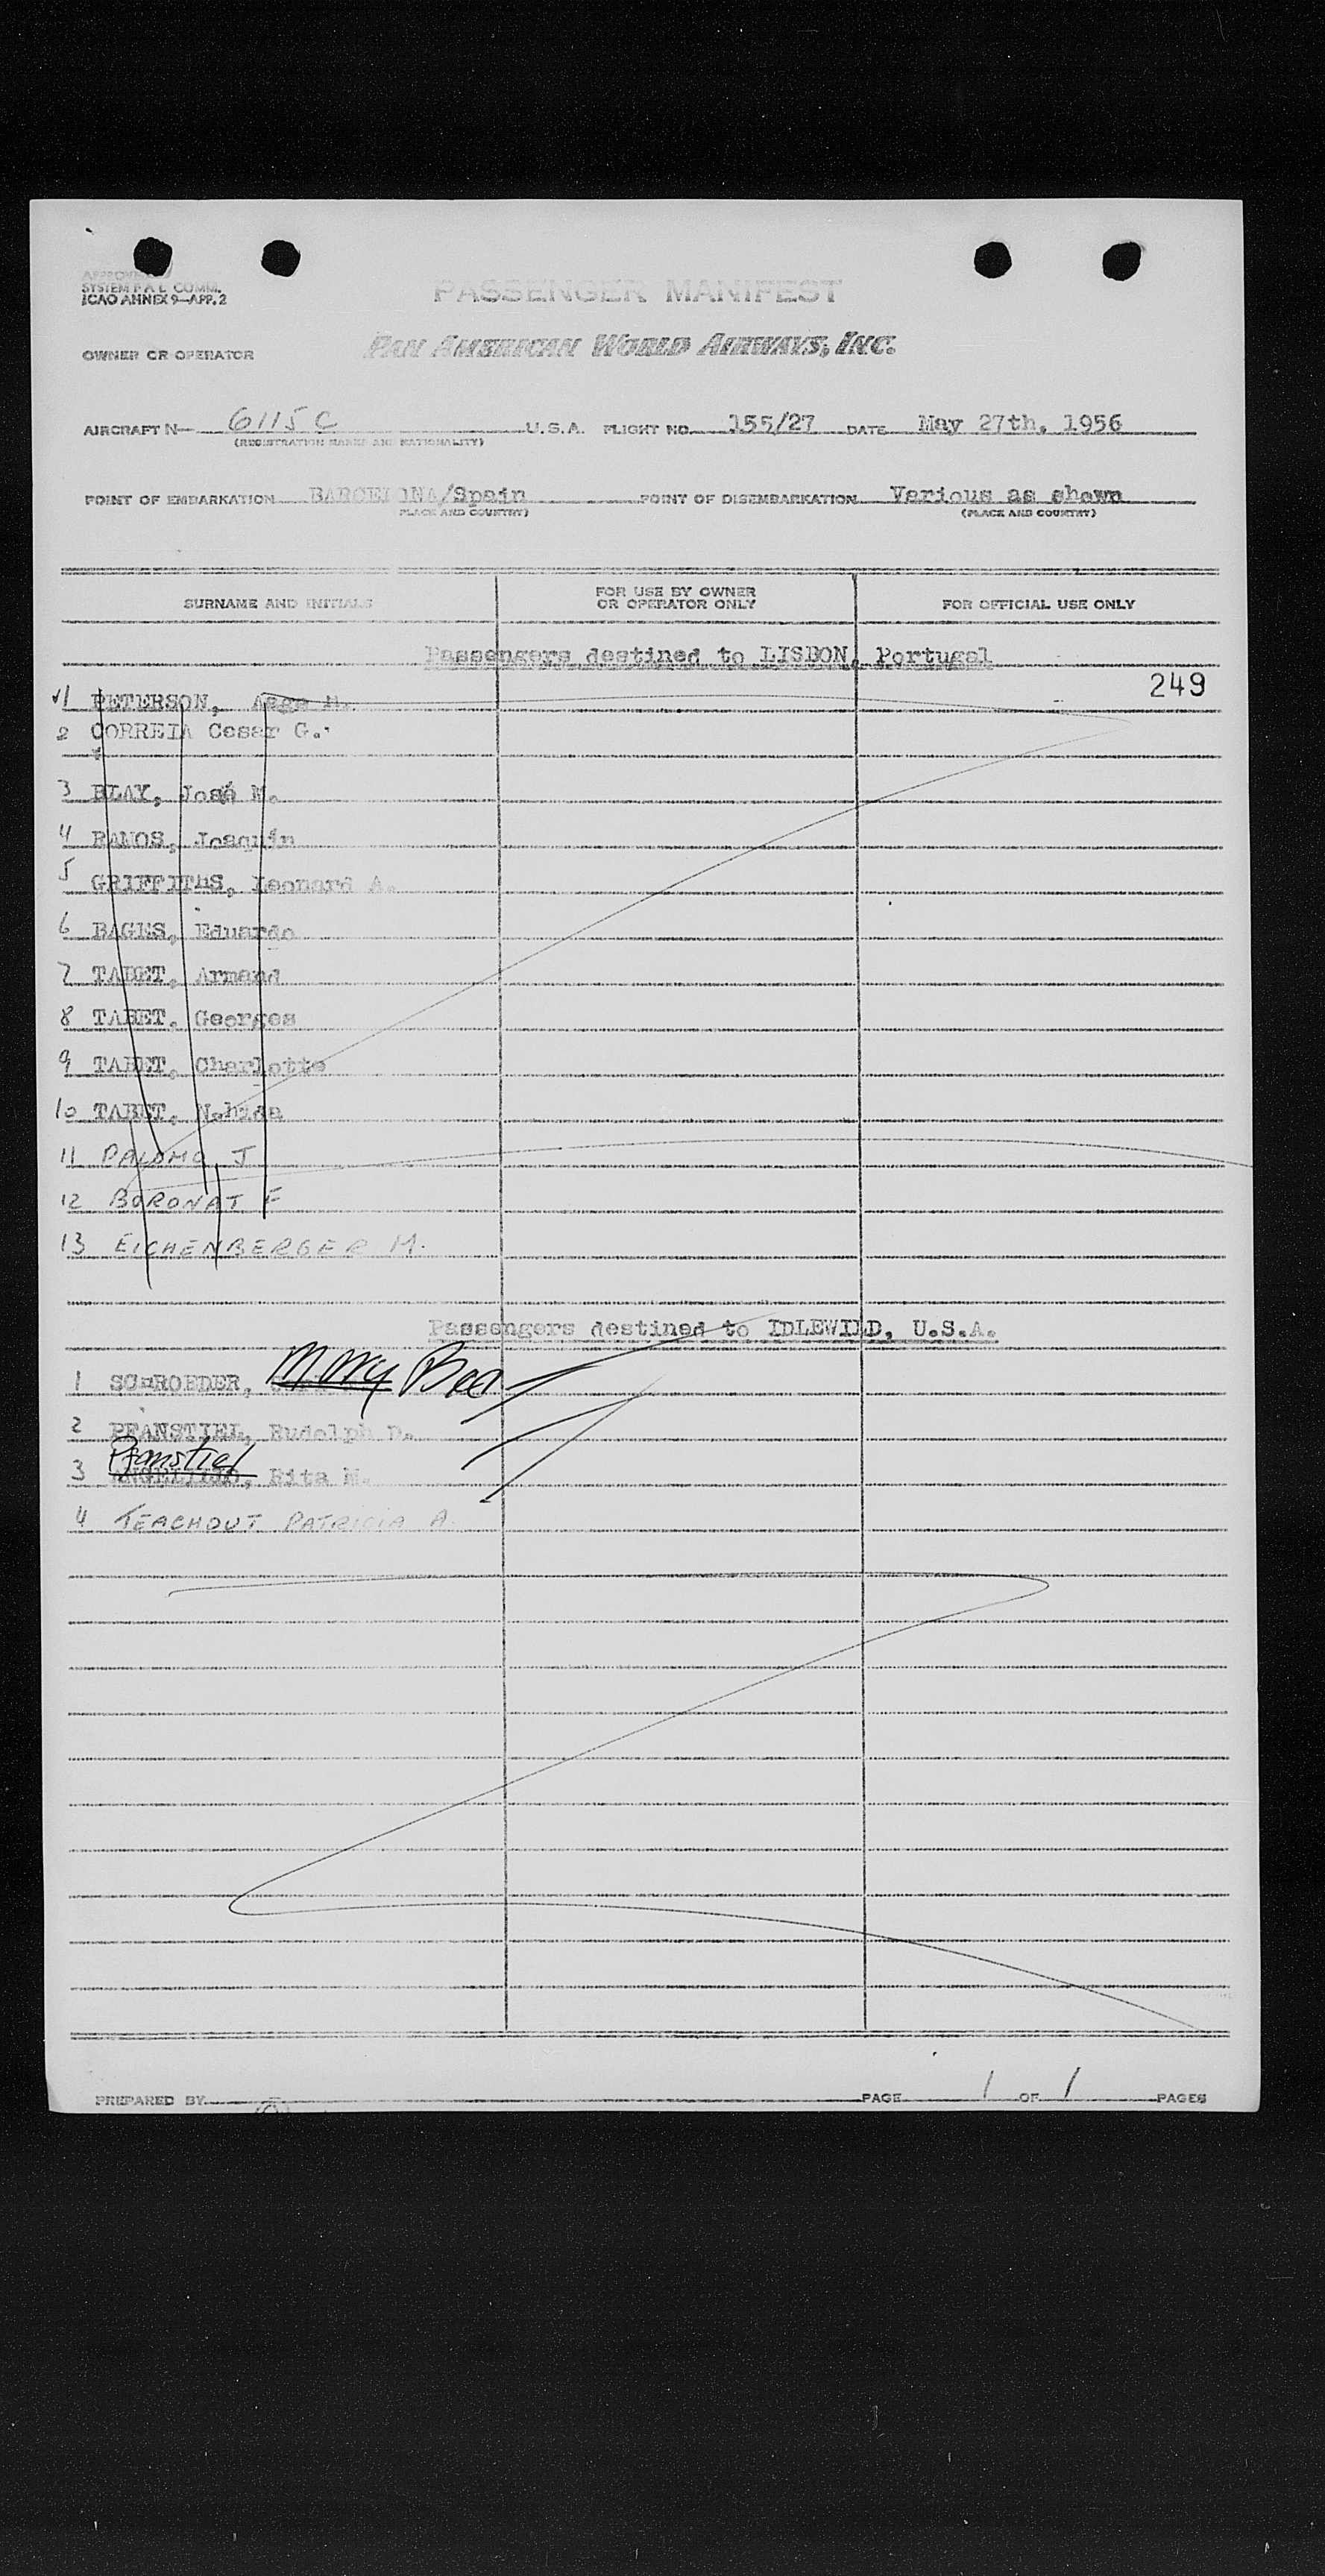 APPROVED
SYSTEM F A L COMM.
ICAO ANNEX 9—APP. 2
PASSENGER MANIFEST
OWNER OR OPERATOR PAN AMERICAN WORLD AIRWAYS, INC.
AIRCRAFT N— 6115C U.S.A. FLIGHT NO. 155/27 DATE May 27th, 1956
(REGISTRATION MARKS AND NATIONALITY)
POINT OF EMBARKATION BARCELONA/Spain POINT OF DISEMBARKATION Various as shown
(PLACE AND COUNTRY) (PLACE AND COUNTRY)
SURNAME AND INITIALS FOR USE BY OWNER OR OPERATOR ONLY FOR OFFICIAL USE ONLY
Passengers destined to LISBON, Portugal
249
1 PETERSON, Aage M.
2 CORREIA Cesar G.
3 BLAY, José M.
4 RAMOS, Joaquín
5 GRIFFITHS, Leonard A.
6 BAGES, Eduardo
7 TABET, Armand
8 TABET, Georges
9 TABET, Charlotte
10 TABET, Nahida
11 PALOMO J
12 BORONAT F
13 EICHENBERGER M.
Passengers destined to IDLEWILD, U.S.A.
1 SCHROEDER, Mary Bea
2 PFANSTIEL, Rudolph D.
Pfanstiel
3 Rita M.
4 TEACHOUT PATRICIA A.
PREPARED BY PAGE 1 OF 1 PAGES